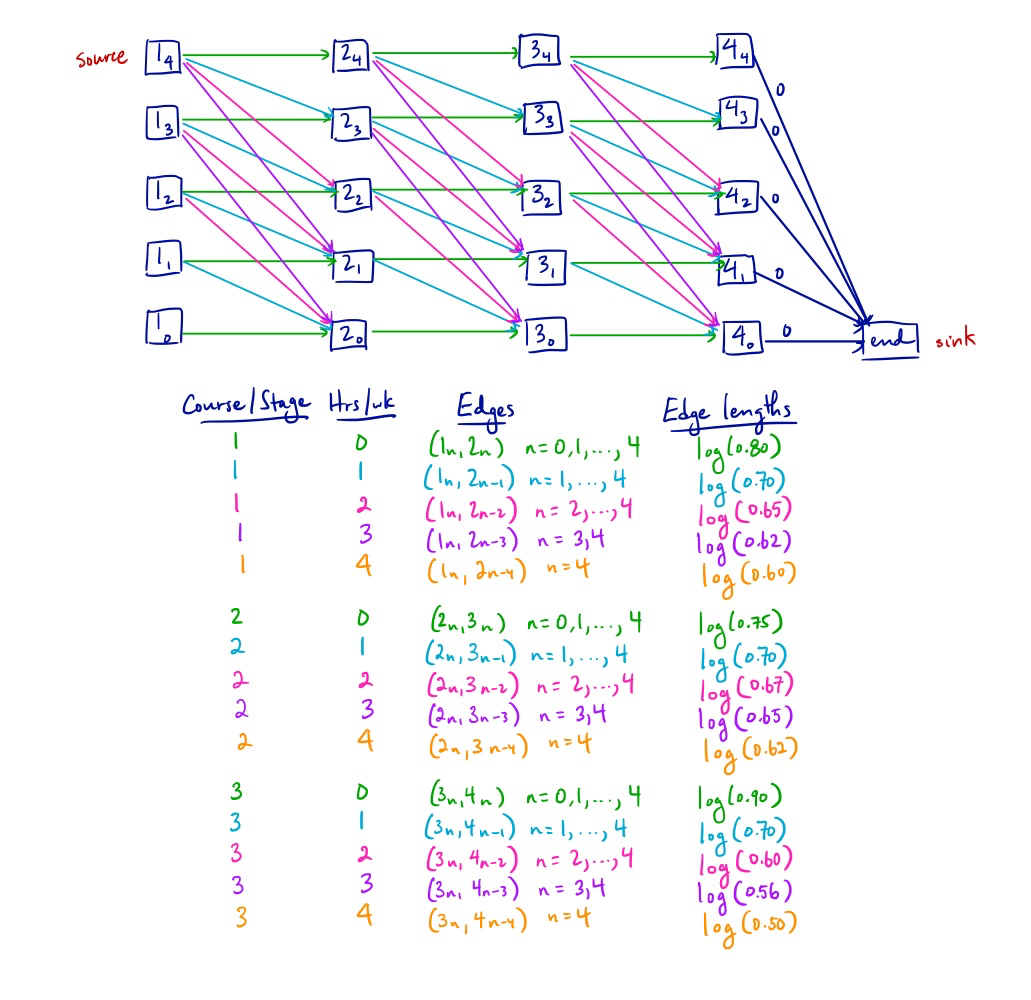 Source 1₄ 2₄ 3₄ 4₄
0
1₃ 2₃ 3₃ 4₃
0
1₂ 2₂ 3₂ 4₂ 0
1₁ 2₁ 3₁ 4₁ 0
1₀ 2₀ 3₀ 4₀ 0 end sink
Course/Stage Hrs/wk Edges Edge lengths
1 0 (1n, 2n) n=0,1,...,4 log(0.80)
1 1 (1n, 2n-1) n=1,...,4 log(0.70)
1 2 (1n, 2n-2) n=2,...,4 log(0.65)
1 3 (1n, 2n-3) n=3,4 log(0.62)
1 4 (1n, 2n-4) n=4 log(0.60)
2 0 (2n, 3n) n=0,1,...,4 log(0.75)
2 1 (2n, 3n-1) n=1,...,4 log(0.70)
2 2 (2n, 3n-2) n=2,...,4 log(0.67)
2 3 (2n, 3n-3) n=3,4 log(0.65)
2 4 (2n, 3n-4) n=4 log(0.62)
3 0 (3n, 4n) n=0,1,...,4 log(0.90)
3 1 (3n, 4n-1) n=1,...,4 log(0.70)
3 2 (3n, 4n-2) n=2,...,4 log(0.60)
3 3 (3n, 4n-3) n=3,4 log(0.56)
3 4 (3n, 4n-4) n=4 log(0.50)